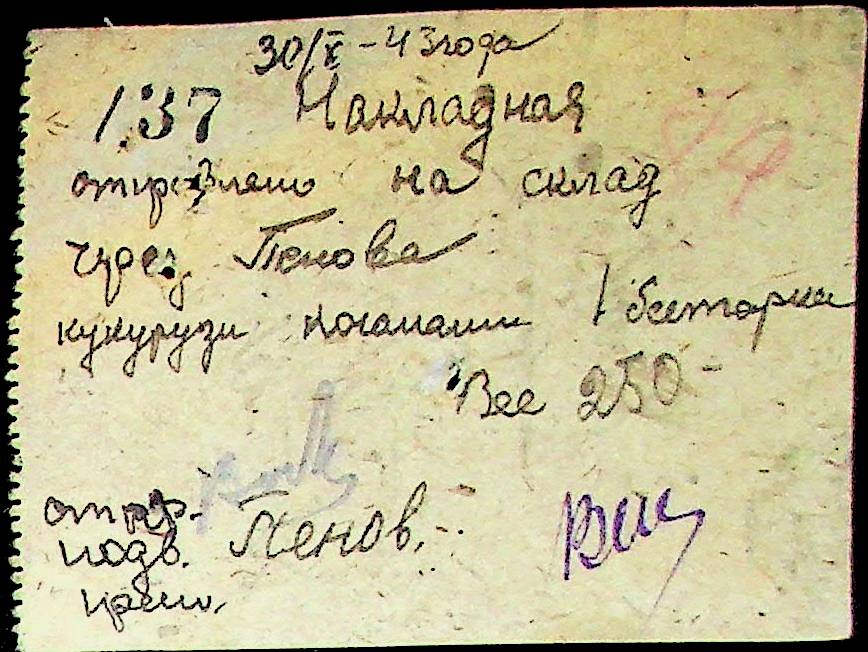 30/X - 43 года
137 Накладная
отправлено на склад
через Пенова
кукурузи кочанами 1 бестарка
Вес 250-
отпр.
подв. Пенов.
прин.